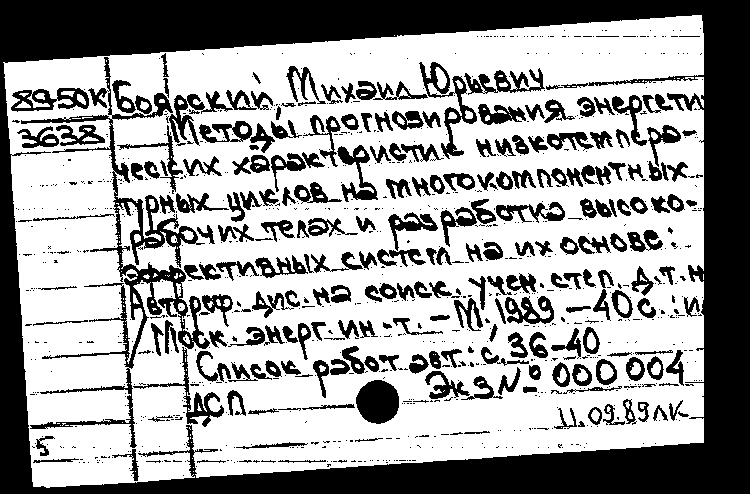 89-50К Боярский Михаил Юрьевич
3638 Методы прогнозирования энергети
ческих характеристик низкотемпера-
турных циклов на многокомпонентных
рабочих телах и разработка высоко-
эффективных систем на их основе:
Автореф. дис. на соиск. учен. степ. д.т.н
/ Моск. энерг. ин-т. – М. 1989. – 40 с. : ил
Список работ авт.: с. 36-40
Экз № 000004
ДСП
11.09.89 ЛК
5